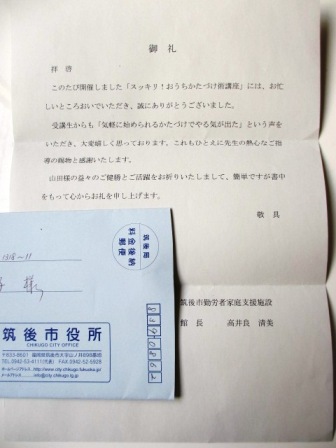 御礼
拝啓
このたび開催しました「スッキリ！おうちかたづけ術講座」には、お忙
しいところおいでいただき、誠にありがとうございました。
受講生からも「気軽に始められるかたづけでやる気が出た」という声を
いただき、大変嬉しく思っております。これもひとえに先生の熱心なご指
導の賜物と感謝いたします。
山田様の益々のご健勝とご活躍をお祈りいたしまして、簡単ですが書中
をもって心からお礼を申し上げます。
敬具
筑後市勤労者家庭支援施設
館長 高井良 清美
筑後局
料金後納
郵便
様
筑後市役所
CHIKUGO CITY OFFICE